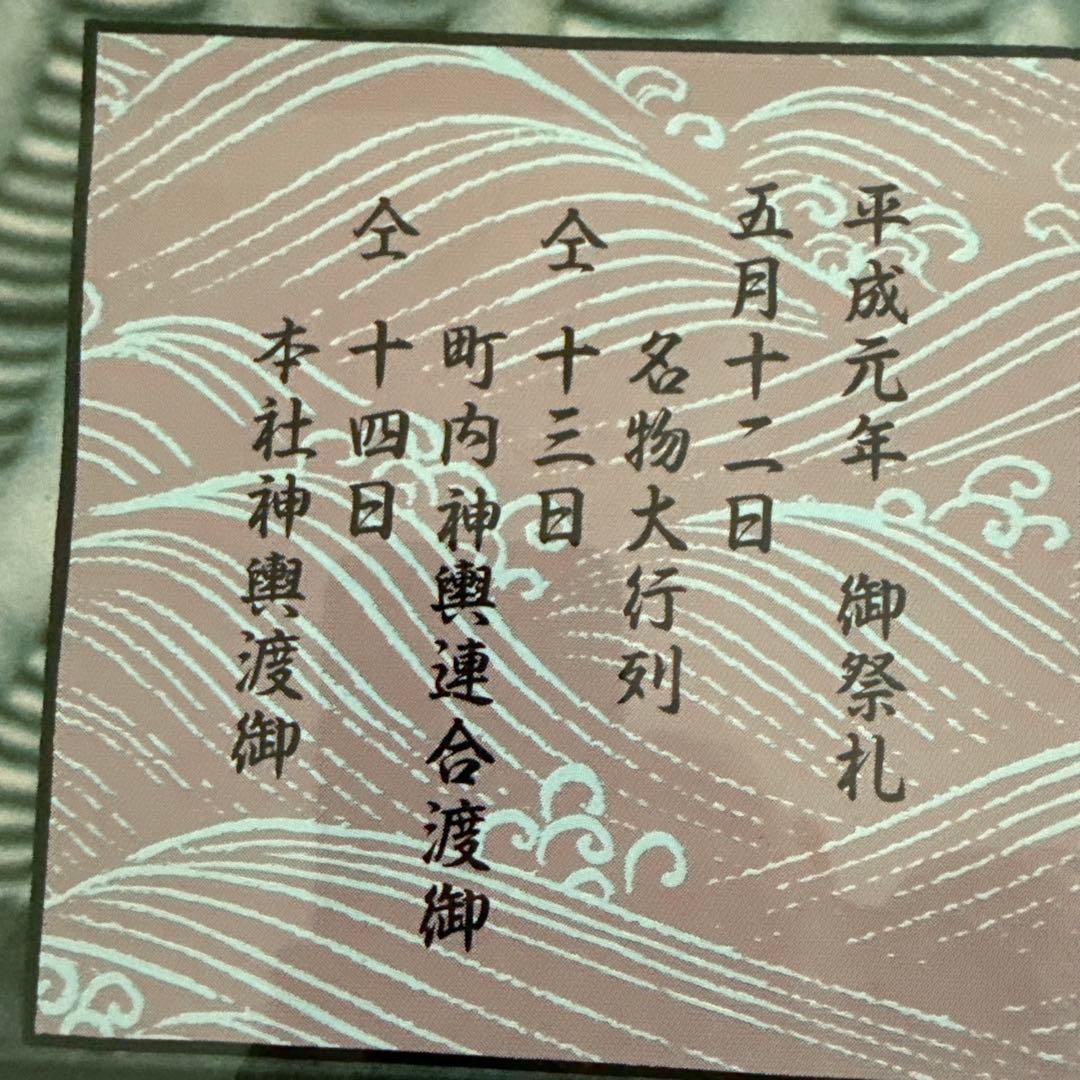 平成元年 御祭札
五月十二日
名物大行列
仝 十三日
町内神輿連合渡御
仝 十四日
本社神輿渡御